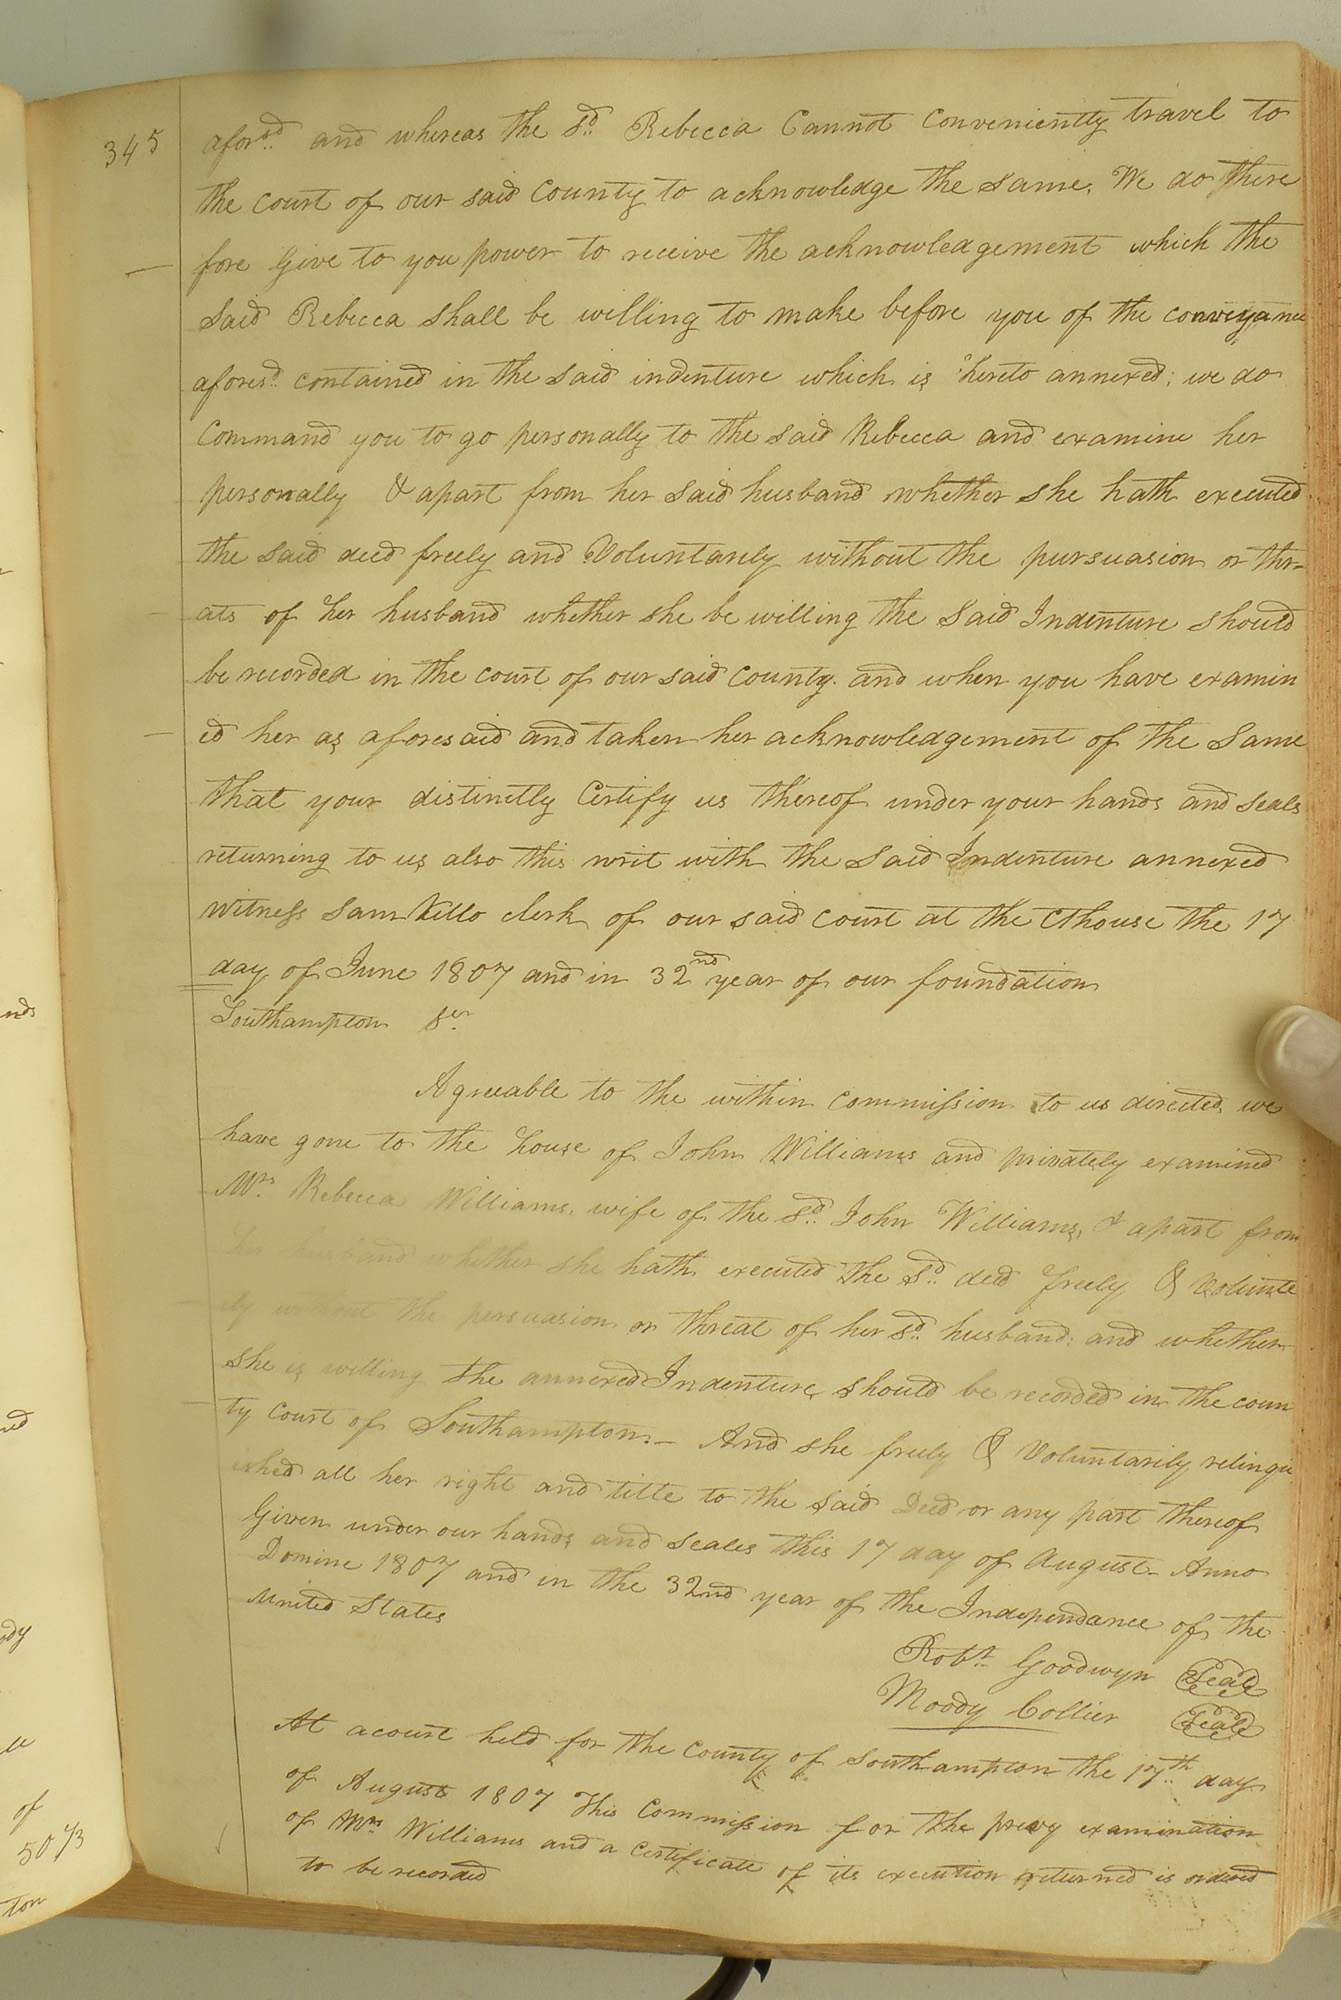 345
afors.d and whereas the s.d Rebecca Cannot Conveniently travel to
the court of our said County to acknowledge the same. We do there
fore Give to you power to receive the acknowledgement which the
said Rebecca shall be willing to make before you of the conveyance
afores.d contained in the said indenture which is hereto annexed; we do
Command you to go personally to the said Rebecca and examine her
personally & apart from her said husband whether she hath executed
the said deed freely and Voluntarily without the pursuasion or thr-
ats of her husband whether she be willing the said Indenture should
be recorded in the court of our said County. and when you have examin
ed her as aforesaid and taken her acknowledgement of the same
that your distinctly Certify us thereof under your hands and seals
returning to us also this writ with the said Indenture annexed
witness Sam Kello clerk of our said court at the Cthouse the 17
day of June 1807 and in 32nd year of our foundation
Southampton
Agreeable to the within commission to us directed, we
have gone to the house of John Williams and privately examined
Mrs. Rebecca Williams, wife of the s.d John Williams, & apart from
her husband whether she hath executed the s.d deed freely & volunta
ily without the persuasion or threat of her s.d husband: and whether
she is willing the annexed Indenture should be recorded in the coun
ty court of Southampton.- And she freely & Voluntarily relinqu
ished all her right and title to the said Deed or any part thereof
Given under our hands and seales this 17 day of August- Anno
Domine 1807 and in the 32nd year of the Independance of the
united States
Robt. Goodwyn Seal
Moody Collier Seal
At acourt held for the County of Southampton the 17th. day
of August 1807 This Commission for the prevy examination
of Mrs Williams and a Certificate of its execution returned is ordered
to be recorded
nds
ed
ody
of
50 1/3
ton